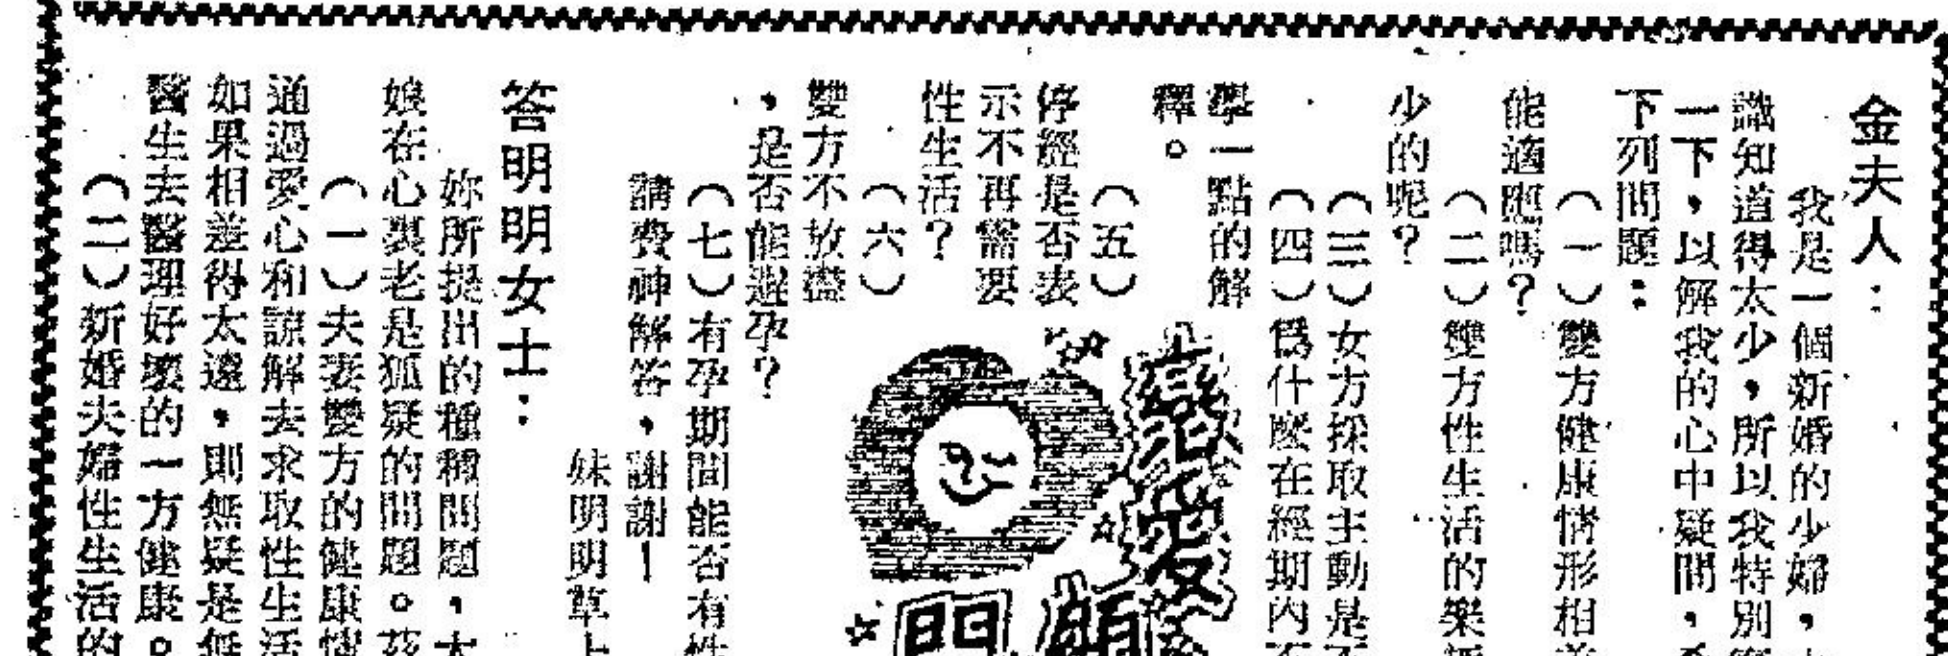 金夫人：
我是一個新婚的少婦，
識知道得太少，所以我特別
一下，以解我的心中疑問，
下列問題：
（一）雙方健康情形相
能適應嗎？
（二）雙方性生活的樂
少的呢？
（三）女方採取主動是
（四）爲什麼在經期內
學一點的解
釋。
（五）
停經是否表
示不再需要
性生活？
（六）
雙方不放盡
，是否能避孕？
（七）有孕期間能否有性
請費神解答，謝謝！
妹明明草上
戀愛
顧問
答明明女士：
妳所提出的種種問題，大
娘在心裏老是狐疑的問題。茲
（一）夫妻雙方的健康情
通過愛心和諒解去求取性生活
如果相差得太遠，則無疑是無
醫生去醫理好壞的一方健康。
（二）新婚夫婦性生活的